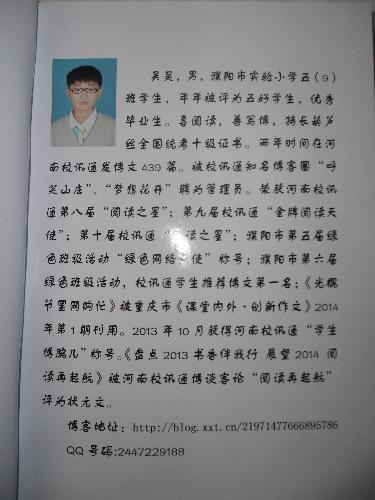 吴昊，男，濮阳市实验小学五（9）
班学生，年年被评为五好学生，优秀
毕业生。喜阅读，善写博，特长葫芦
丝全国统考十级证书。两年时间在河
南校讯通发博文439篇。被校讯通知名博客圈“呼
笑山庄”、“梦想花开”聘为管理员。荣获河南校讯
通第八届“阅读之星”；第九届校讯通“金牌阅读天
使”；第十届校讯通“阅读之星”；濮阳市第五届绿
色班级活动“绿色网络天使”称号；濮阳市第六届
绿色班级活动，校讯通学生推荐博文第一名；《光棍
节里网购忙》被重庆市《课堂内外·创新作文》2014
年第1期刊用。2013年10月获得河南校讯通“学生
博腕儿”称号。《盘点2013书香伴我行 展望2014阅
读再起航》被河南校讯通博谈客论“阅读再起航”
评为状元文。
博客地址：http://blog.xxt.cn/21971477666895786
QQ号码:2447229188